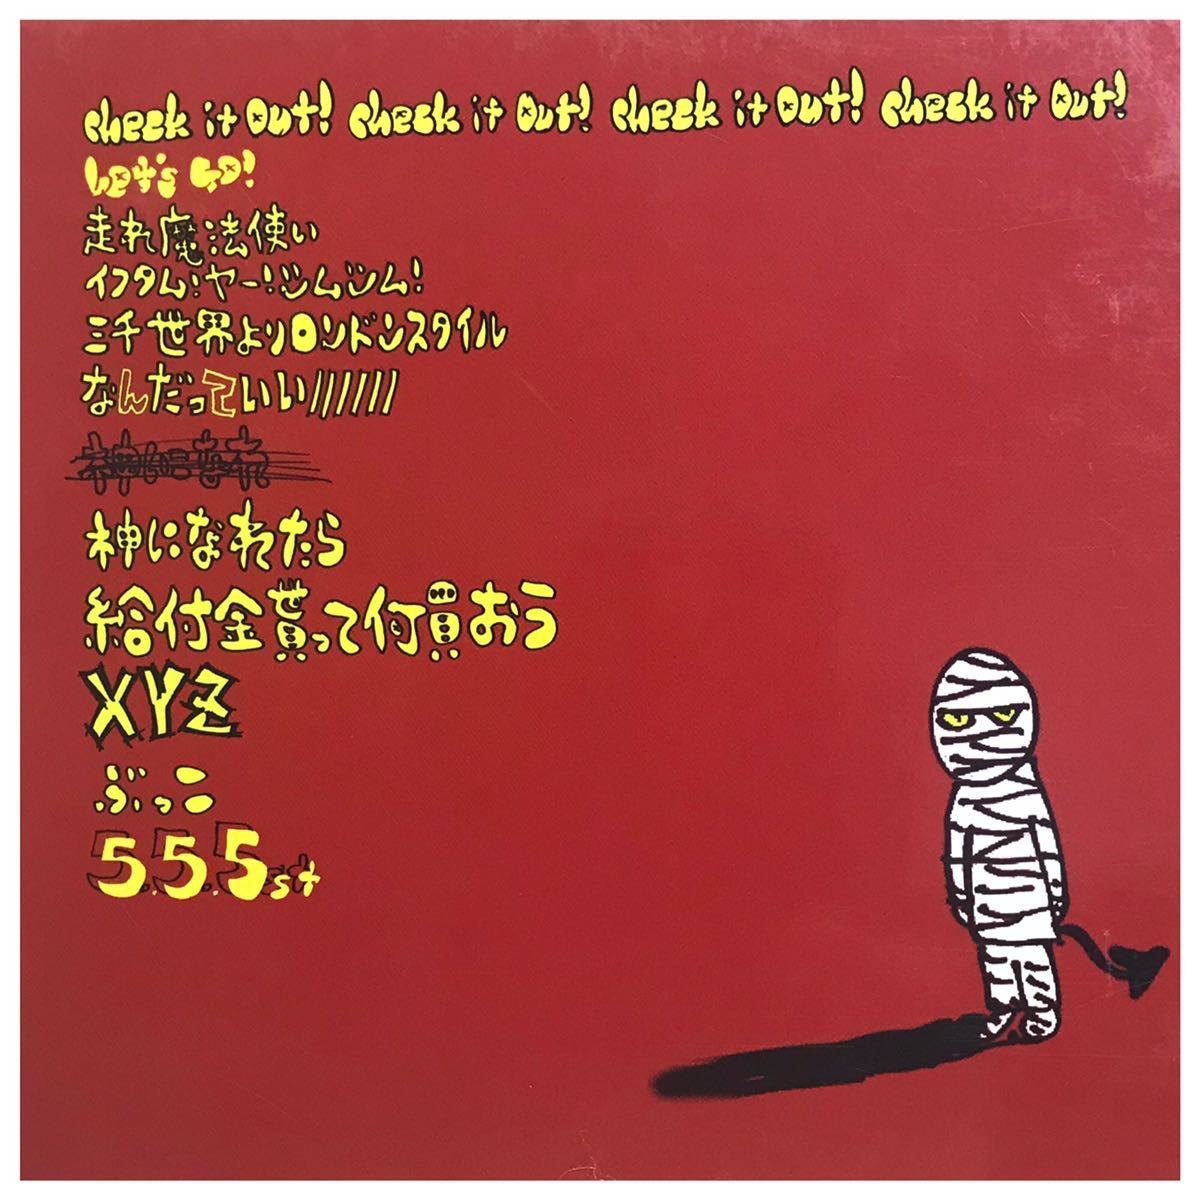 check it Out! check it Out! check it Out! check it Out!
Let's GO!
走れ魔法使い
イフタム!ヤー!シムシム!
三千世界よりロンドンスタイル
なんだっていい///////
神になれたら
給付金貰って何買おう
XYZ
ぶっこ
5.5.5st